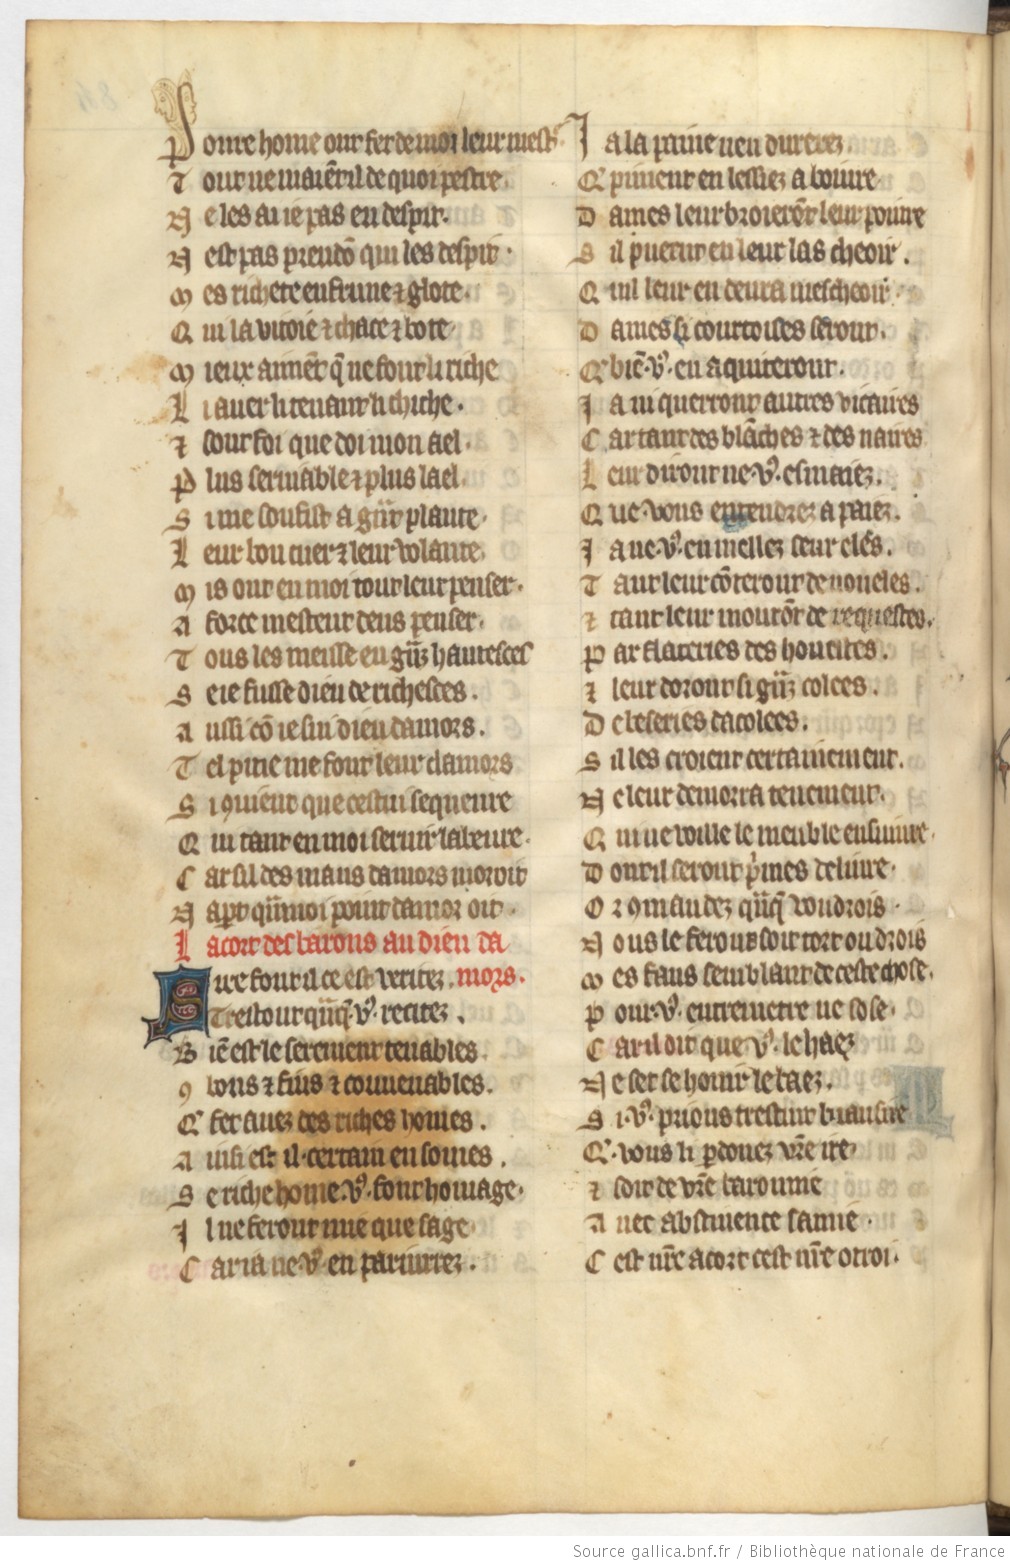 Poure home ont fet de moi leur mestre
Tout ne maientil de quoi pestre.
Ne les ai ie pas en despit.
Nest pas preudō qui les despit.
Mes richece enfrune ⁊ glote.
Qui la viutoie ⁊ chace ⁊ bote.
Mieux aimēt q̄ ne font li riche
Li auer li tenant li chiche.
⁊ sont foi que doi mon ael.
Plus seruiable ⁊ plus lael.
Si me soufist a gñt plante.
Leur bon cuer ⁊ leur volante.
Mis ont en moi tout leur penser.
A force mesteut deus penser.
Tous les meisse en gñs hautesces
Se ie fusse dieu de richesces.
Aussi cō ie sui dieu damors.
Tel pitie me font leur clamors
Si ꝯuient que cestui sequeure
Qui tant en moi seruir labeure.
Car sil des maus damors moroit
Napt quñ moi point damor oit.
Lacort des barons au dieu da
mors.
Sire font il ce est veritez.
Trestout quñq; v9. recitez.
Biē est le serement tenables.
9 bons ⁊ fins ⁊ couuenables.
Q fet auez des riches homes.
Ainsi est il certain en somes.
Se riche home. v9. font homage.
Il ne feront mie que sage.
Car ia ne v9. en pariurrez.
Ia la paine nen durerez.
Q piment en lessiez a boiure.
Dames leur broierōt leur poiure
Sil pueent en leur las cheoir.
Quil leur en deura mescheoir.
Dames si courtoises seront.
Q biē. v9. en aquiteront.
Ia ni querront autres vicaires
Car tant des blāches ⁊ des naires
Leur diront ne v9. esmaiez.
Que vous en tendrez a paiez.
Ia ne v9. en mellez seur eles.
Tant leur cōteront de noueles.
⁊ tant leur mouurōt de requestes.
Par flateries des honnestes.
⁊ leur dorront si gñs colees.
De beseries dacolees.
Sil les croient certainement.
Ne leur demorra tenement.
Qui ne voille le meuble ensuiure.
Dont il seront p̄mes deliure.
Or ꝯmandez quñq; voudrois.
Nous le ferons soit tort ou drois
Mes faus semblant de ceste chose.
Pour. v9. entremetre ne sose.
Car il dit que v9. le haez
Ne set se honir le baez.
Si. v9. prions trestuit biau sire
Q. vous li pdonez vr̄e ire.
⁊ soit de vr̄e baronnie
Auec abstinence samie.
Cest nr̄e acort cest nr̄e otroi.
Source gallica.bnf.fr / Bibliothèque nationale de France